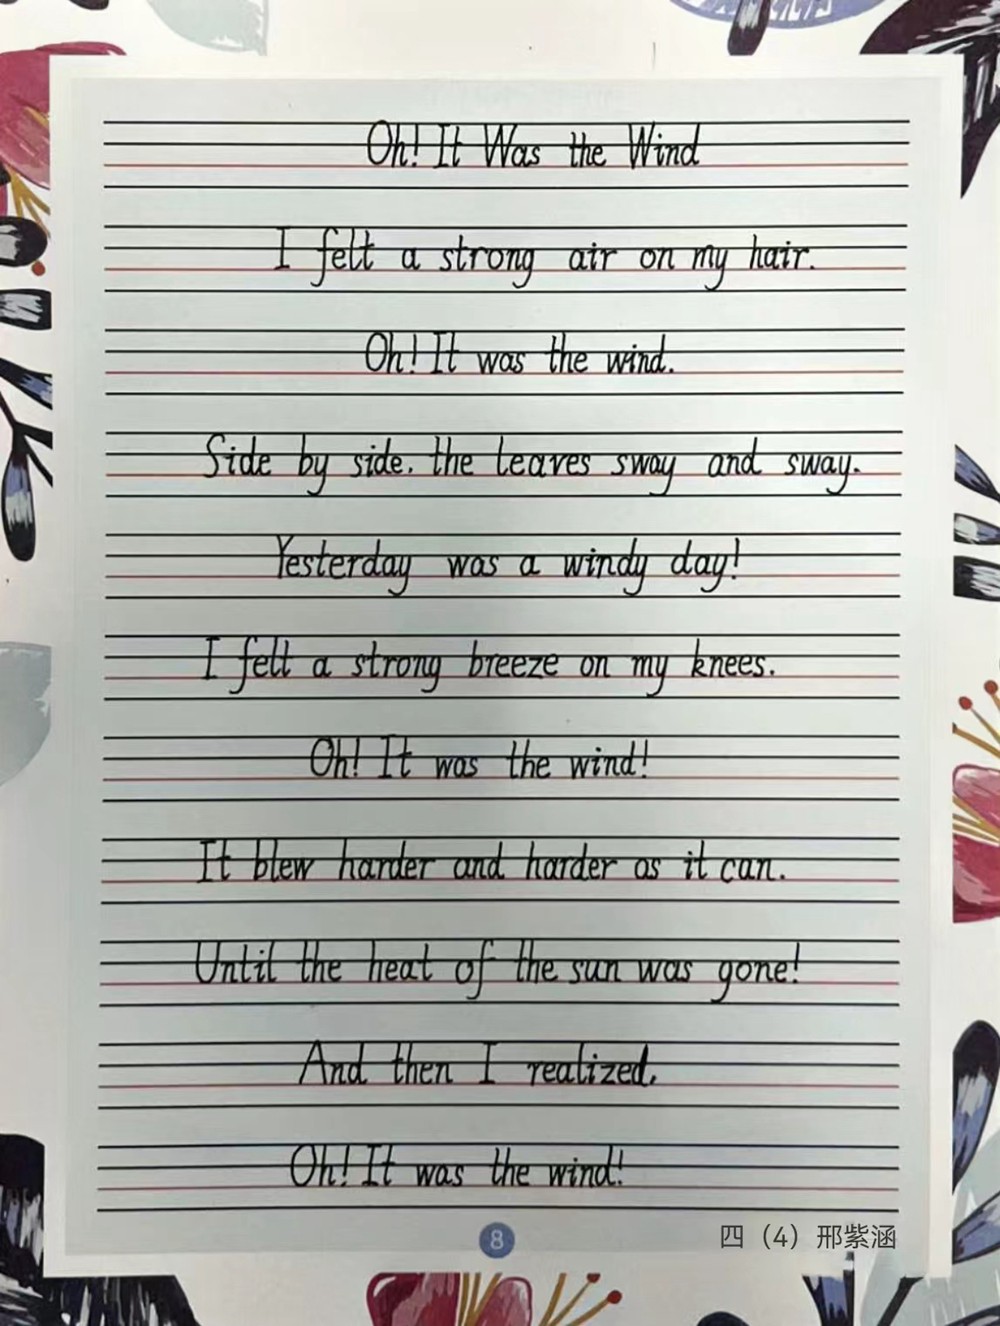 Oh! It Was the Wind
I felt a strong air on my hair.
Oh! It was the wind.
Side by side. the leaves sway and sway.
Yesterday was a windy day!
I felt a strong breeze on my knees.
Oh! It was the wind!
It blew harder and harder as it can.
Until the heat of the sun was gone!
And then I realized.
Oh! It was the wind!
8
四（4）邢紫涵